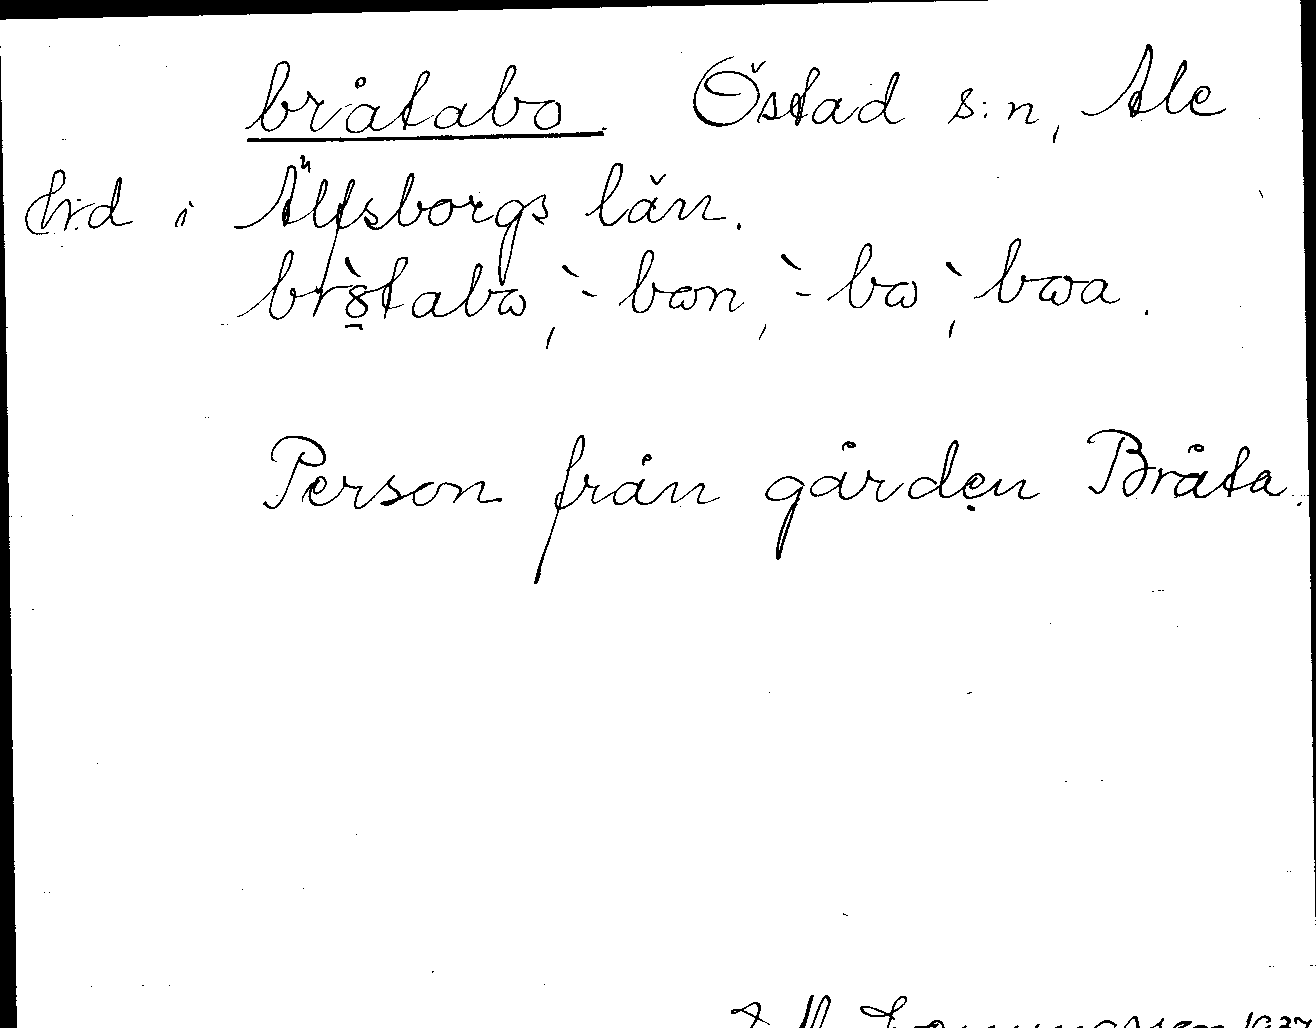 bråtabo. Östad s:n, Ale
hrd i Älfsborgs län.
br8̱̀tabɷ, `- bɷn, `- bɷ, ` bɷa.
Person från gården Bråta.
1937